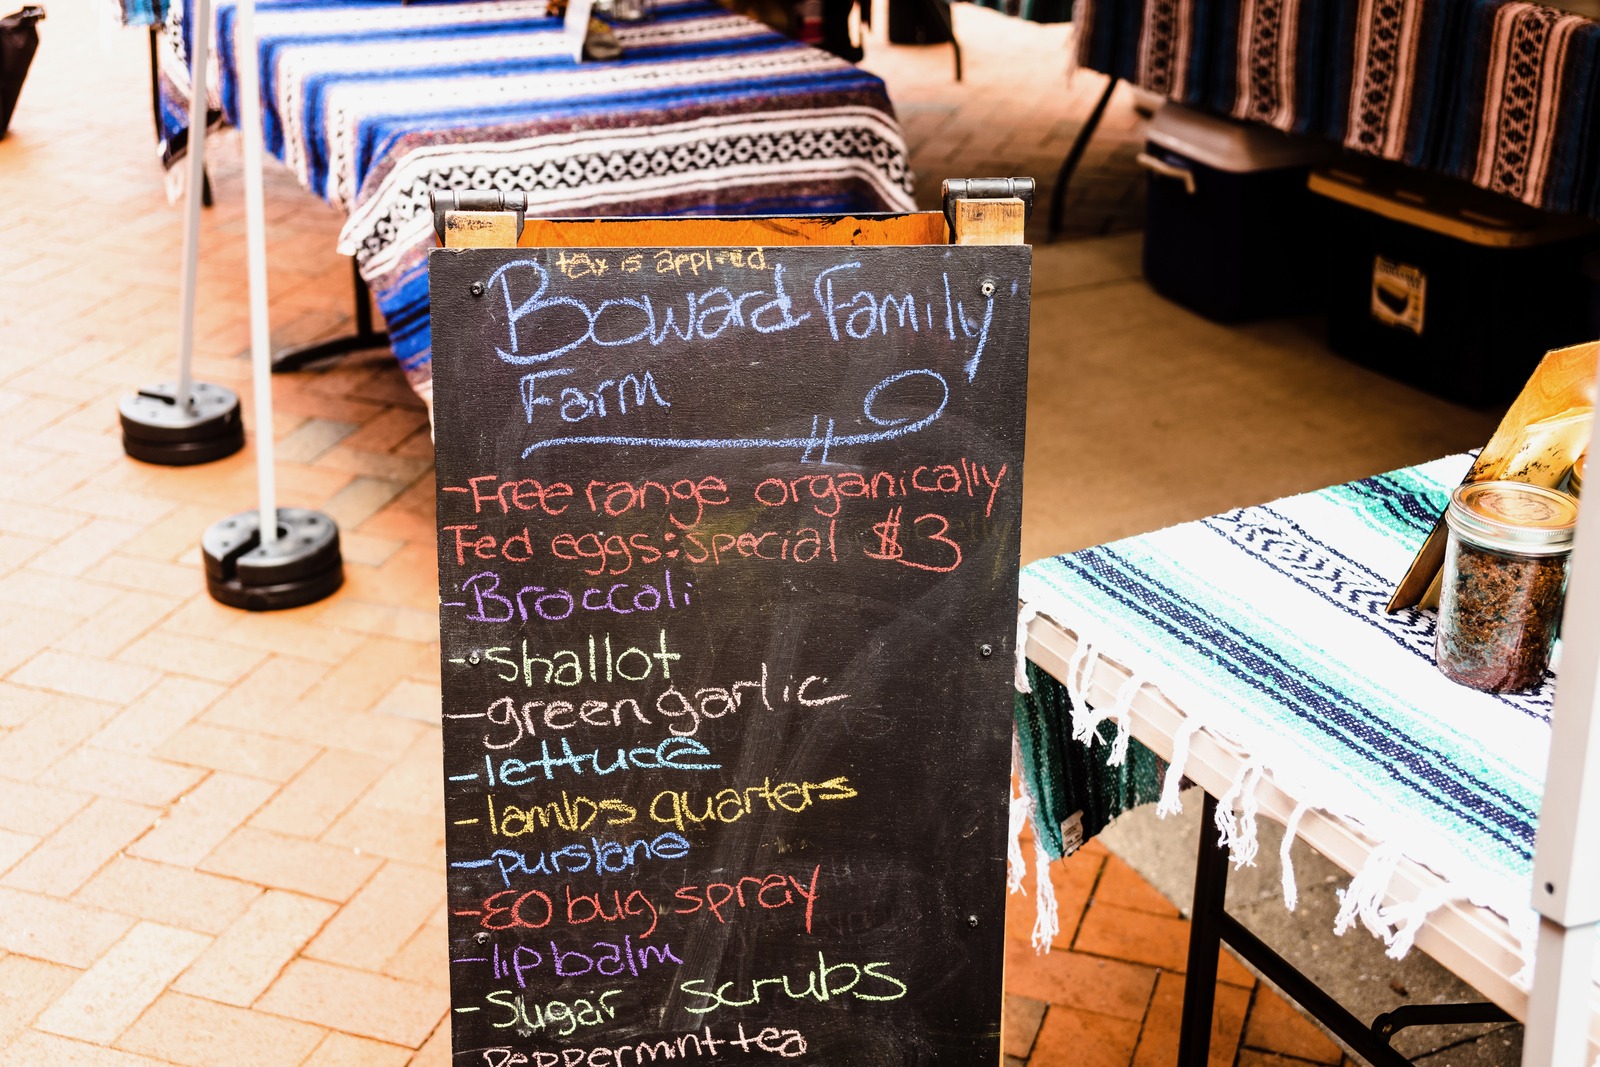 tax is applied
Boward Family
Farm
-Free range organically
Fed eggs: special $3
-Broccoli
-shallot
-green garlic
-lettuce
-lambs quarters
-purslane
-EO bug spray
-lip balm
-Sugar scrubs
peppermint tea